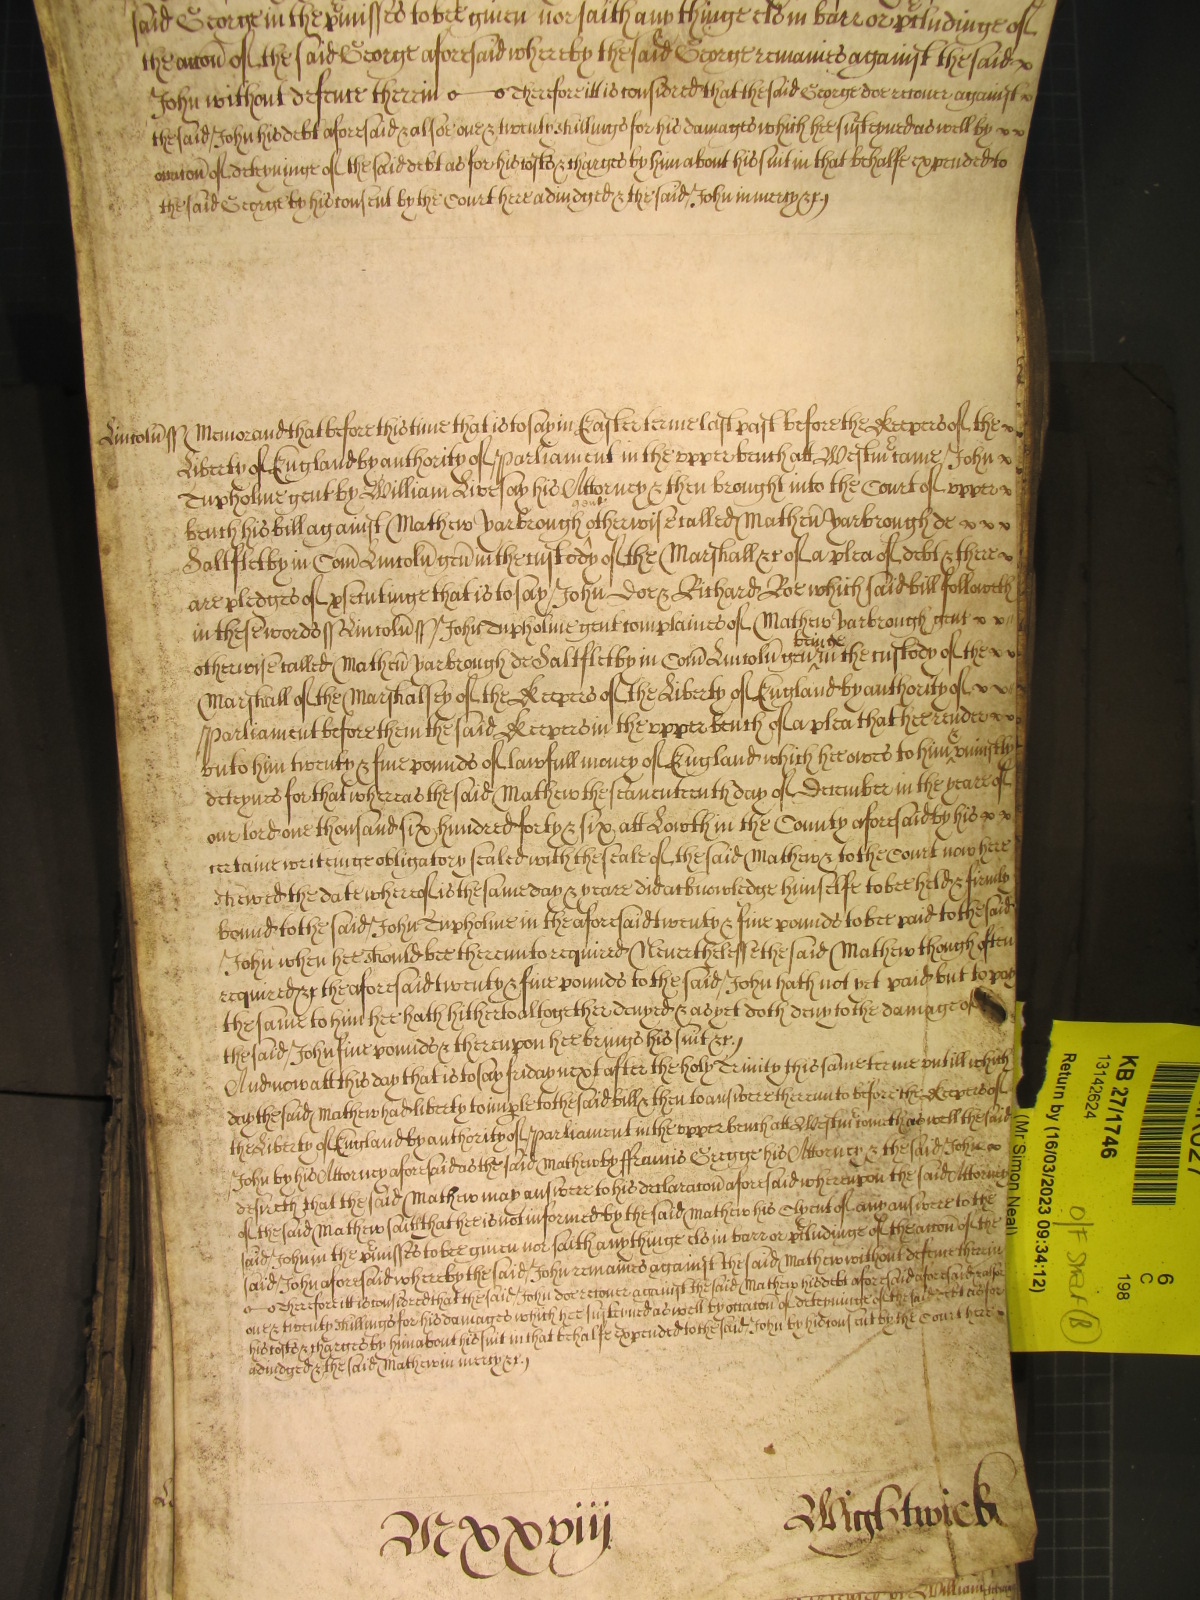 said George in the pͬmisses to bee given nor saith any thinge els in barr or pͬcludinge of
the accon̄ of the said George aforesaid whereby the said George remaines against the said x
John without defence therein o— —o Therefore itt is considred that the said George doe recover against x
the said John his debt aforesaid & alsoe one & twenty shillings for his damages which hee susteyned as well by x x
occacon̄ of deteyninge of the said debt as for his costs & charges by him about his suit in that behalfe expended to
the said George by his consent by the Court here adiudged & the said John in mercy &c.
Lincoln̄ ss Memorand that before this time that is to say in Easter terme last past before the Keepers of the x
Liberty of England by authority of Parliament in the upper bench att Westmͬ came John x
Tupholme gent by William Livesay his Attorney & then brought into the Court of upper x
bench his bill against Mathew Yarbrough gent otherwise called Mathew Yarbrough de x x x
Saltfletby in Com̄ Lincoln̄ gen̄ in the custody of the Marshall &c of a plea of debt & there x
are pledges of psecutinge that is to say John Doe & Richard Roe which said bill followeth
in these words ss Lincoln̄ ss John Tupholme gent complaines of Mathew Yarbrough gent x x
otherwise called Mathew Yarbrough de Saltfletby in Com̄ Lincoln̄ gen̄ beinge in the custody of the x x
Marshall of the Marshalsey of the Keepers of the Liberty of England by authority of x x
Parliament before them the said Keepers in the upper bench of a plea that hee render x x
unto him twenty & five pounds of lawfull money of England which hee owes to him & uniustly
deteynes for that whereas the said Mathew the seaventeenth day of December in the yeare of
our lord one thousand six hundred forty & six att Lowth in the County aforesaid by his x x
certaine writeinge obligatory sealed with the seale of the said Mathew & to the Court now here
shewed the date whereof is the same day & yeare did acknowledge himselfe to bee held & firmly
bound to the said John Tupholme in the aforesaid twenty & five pounds to bee paid to the said
John when hee should bee thereunto required Neverthelesse the said Mathew though often
required &c the aforesaid twenty & five pounds to the said John hath not yet paid but to pay
the same to him hee hath hitherto altogether denyed & as yet doth deny to the damage of
the said John five pounds & thereupon hee brings his suit &c.
And now att this day that is to say friday next after the holy Trinity this same terme untill which
day the said Mathew had liberty to imple to the said bill & then to answere thereunto before the Keepers of
the Liberty of England by authority of Parliament in the upper bench att Westmͬ cometh as well the said
John by his Attorney aforesaid as the said Mathew by ffrancis Gregge his Attorney & the said John x
desireth that the said Mathew may answere to his declaracon̄ aforesaid whereupon the said Attorney
of the said Mathew saith that hee is not informed by the said Mathew his Clyent of any answere to the
said John in the pͬmisses to bee given nor saith any thinge els in barr or pͬcludinge of the accon of the
said John aforesaid whereby the said John remaines against the said Mathew without defence therein
o— —o Therefore itt is considered that the said John doe recover against the said Mathew his debt aforesaid aforesaid & alsoe
one & twenty shillings for his damages which hee susteyned as well by occacon̄ of deteyninge of the said debt as for
his costs & charges by him about his suit in that behalfe expended to the said John by his consent by the Court here x
adiudged & the said Mathew in mercy &c.
Mxxviij Wightwick
William
KB 27/1746
13142624
Return by (16/03/2023 09:34:12)
(Mr Simon Neal)
6
C
198